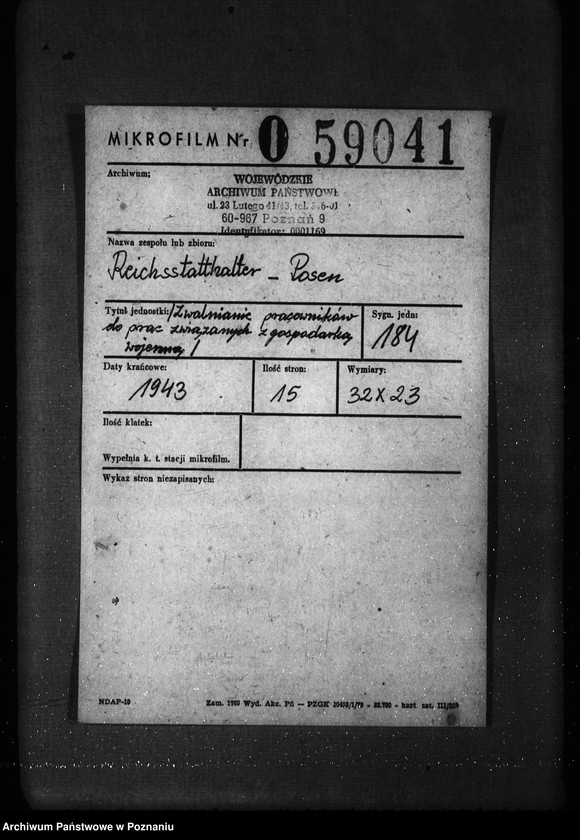 MIKROFILM Nr 0 59041
Archiwum:
WOJEWÓDZKIE
ARCHIWUM PAŃSTWOWE
ul. 23 Lutego 41/43, tel.
60-967 Poznań 9
Identyfikator: 0001169
Nazwa zespołu lub zbioru:
Reichsstatthalter - Posen
Tytuł jednostki: /Zwalnianie pracowników
do prac związanych z gospodarką
wojenną/
Sygn. jedn:
184
Daty krańcowe:
1943
Ilość stron:
15
Wymiary:
32 x 23
Ilość klatek:
Wypełnia k. t. stacji mikrofilm.
Wykaz stron niezapisanych:
NDAP-10
Zam. 1760 Wyd. Akc. Pń — PZGK kart. sat. III/
Archiwum Państwowe w Poznaniu